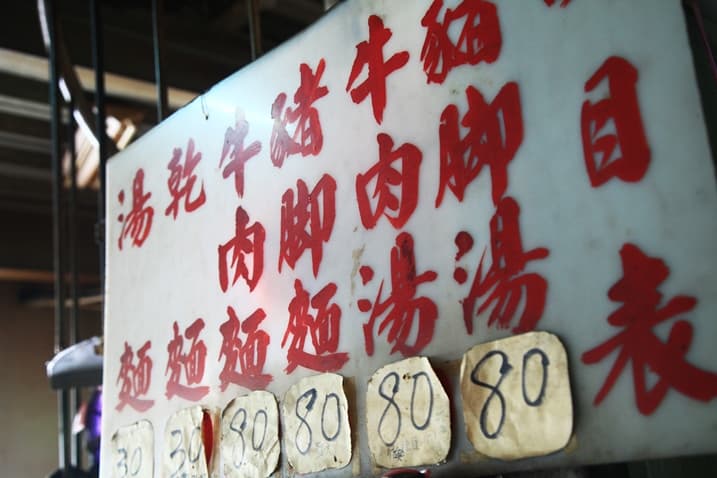 目表
豬腳湯
80
牛肉湯
80
豬腳麵
80
牛肉麵
80
乾麵
30
湯麵
30